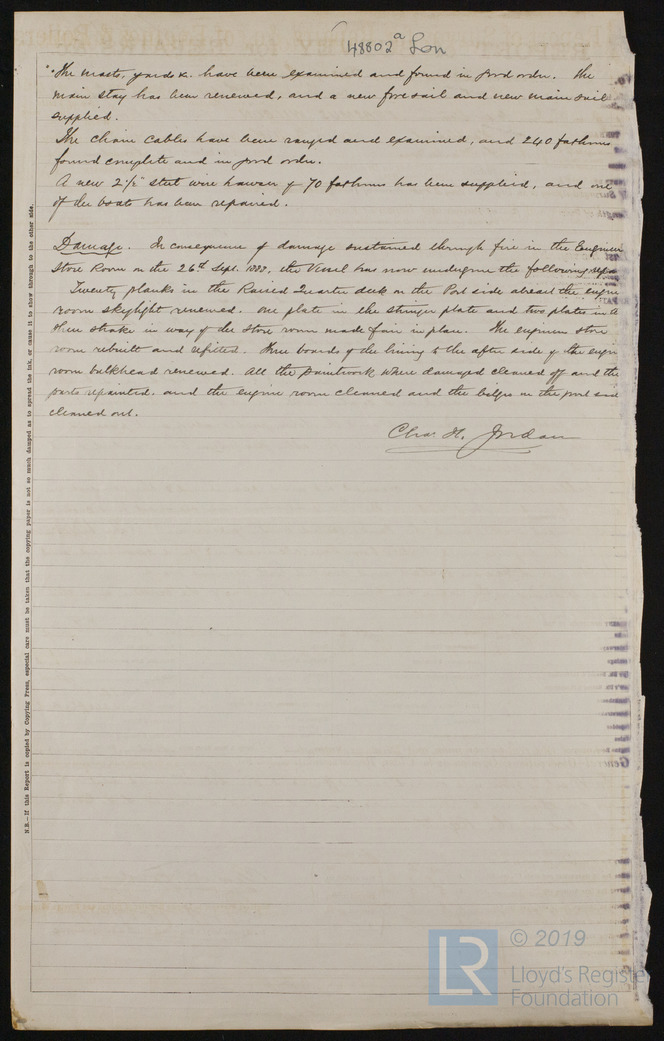 48802a Lon
"The masts, yards &. have been examined and found in good order. The
main stay has been renewed, and a new fore sail and new main sail
supplied.
The chain cables have been ranged and examined, and 240 fathoms
found complete and in good order.
A new 2½" steel wire hawser of 70 fathoms has been supplied, and one
of the boats has been repaired.
Damage. In consequence of damage sustained through fire in the Engineer
Store Room on the 26th Sept. the Vessel has now undergone the following
Twenty planks in the Raised Quarter deck on the Port side abreast the engine
room skylight renewed. One plate in the stringer plate and two plates in
sheer strake in way of the store room made fair in place. The engineer store
room rebuilt and refitted. Three boards of the lining to the after side of the
room bulkhead renewed. All the paintwork where damaged cleaned off and the
parts repainted. and the engine room cleaned and the bilges on the port side
cleaned out.
Chas. H. Jordan
N.B.—If this Report is copied by Copying Press, especial care must be taken that the copying paper is not so much damped as to spread the ink, or cause it to show through to the other side.
LR
© 2019
Lloyd's Register
Foundation